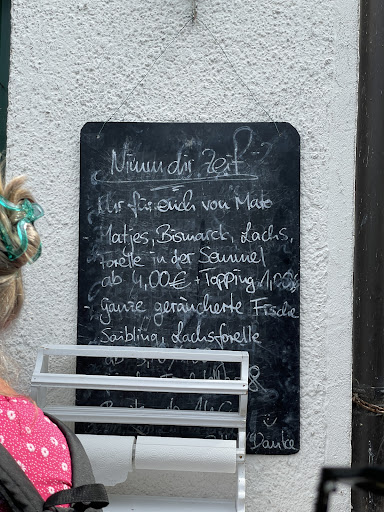 Nimm dir Zeit
Nur für euch von Mato
Matjes, Bismarck, Lachs,
Forelle in der Semmel
ab 4,00€ + Topping 1,00€
ganze geräucherte Fische
Saibling, Lachsforelle
ab
Danke